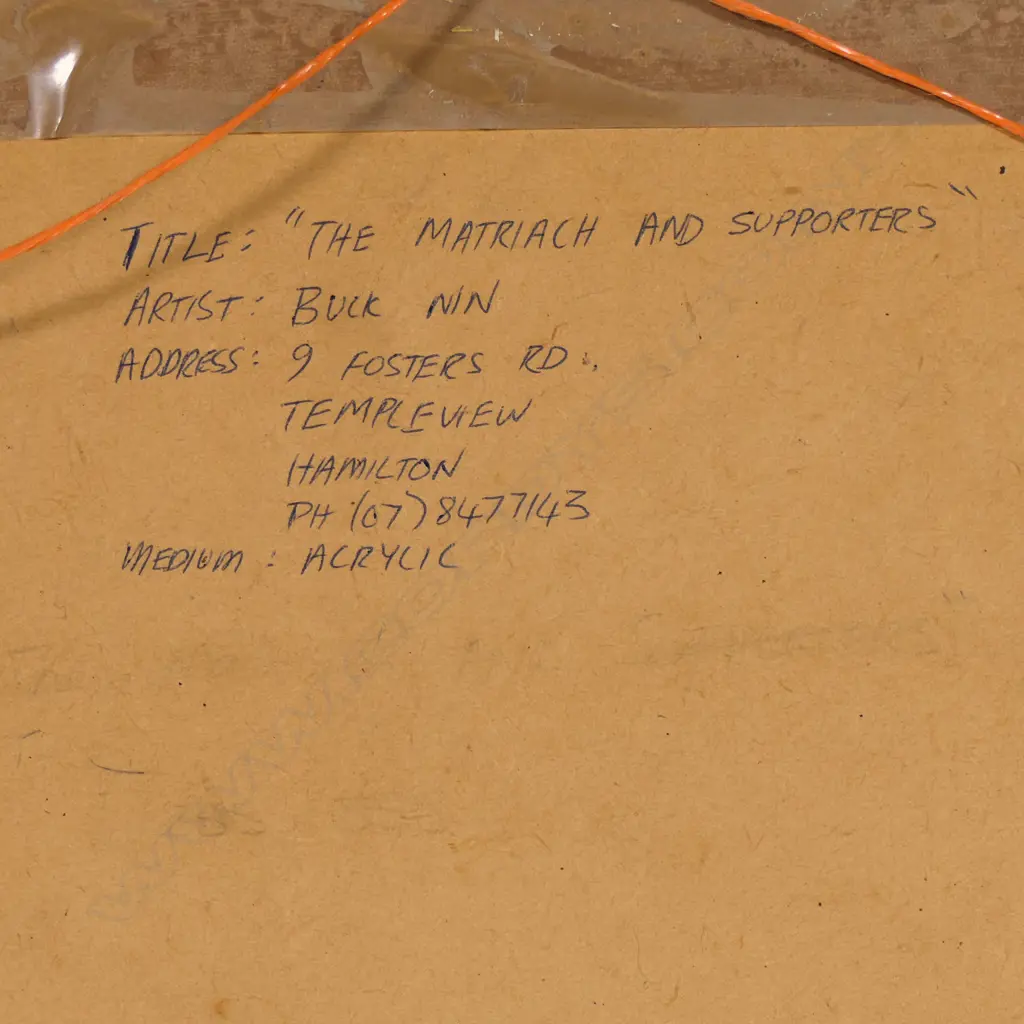 TITLE: "THE MATRIACH AND SUPPORTERS"
ARTIST: BUCK NIN
ADDRESS: 9 FOSTERS RD.,
TEMPLEVIEW
HAMILTON
PH (07) 8477143
MEDIUM: ACRYLIC